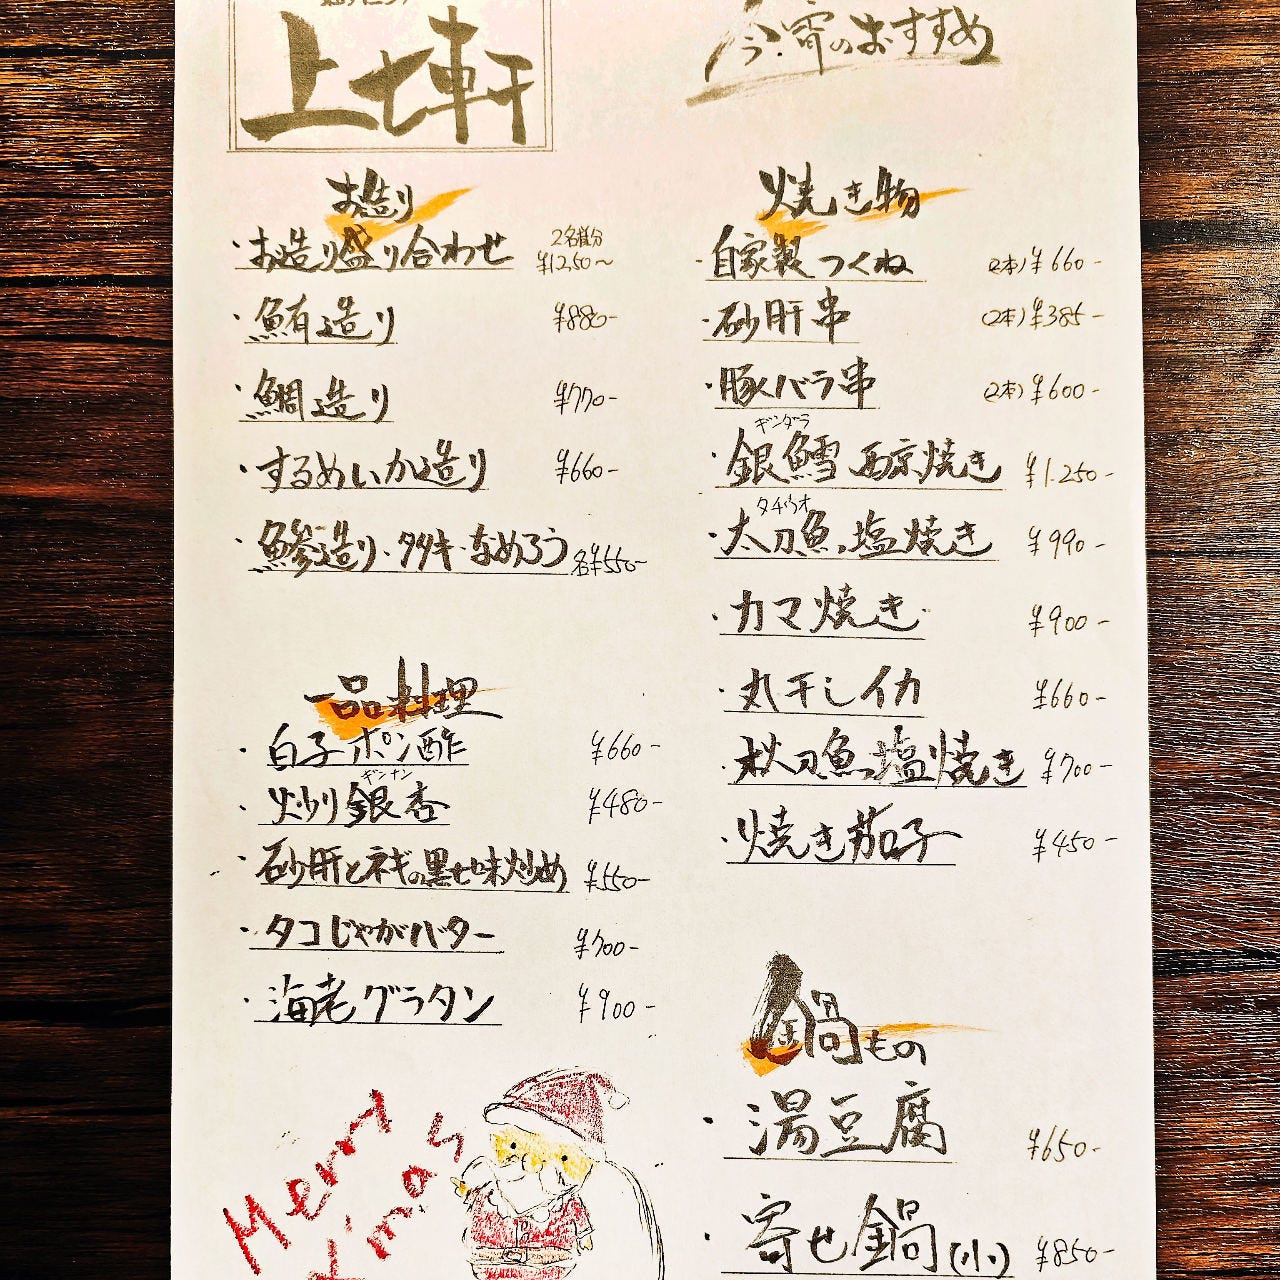 上七軒
今宵のおすすめ
お造り
・お造り盛り合わせ 2名様分 ¥1250〜
・鮪造り ¥880-
・鯛造り ¥770-
・するめいか造り ¥660-
・鯵造り・タタキ・なめろう 各¥550-
一品料理
・白子ポン酢 ¥660-
ギンナン
・炒り銀杏 ¥480-
・砂肝とネギの黒七味炒め ¥550-
・タコじゃがバター ¥700-
・海老グラタン ¥900-
Merry
X'mas
焼き物
・自家製つくね (2本)¥660-
・砂肝串 (2本)¥385-
・豚バラ串 (2本)¥600-
ギンダラ
・銀鱈西京焼き ¥1.250-
タチウオ
・太刀魚塩焼き ¥990-
・カマ焼き ¥900-
・丸干しイカ ¥660-
・秋刀魚塩焼き ¥700-
・焼き茄子 ¥450-
鍋もの
・湯豆腐 ¥650-
・寄せ鍋(小) ¥850-